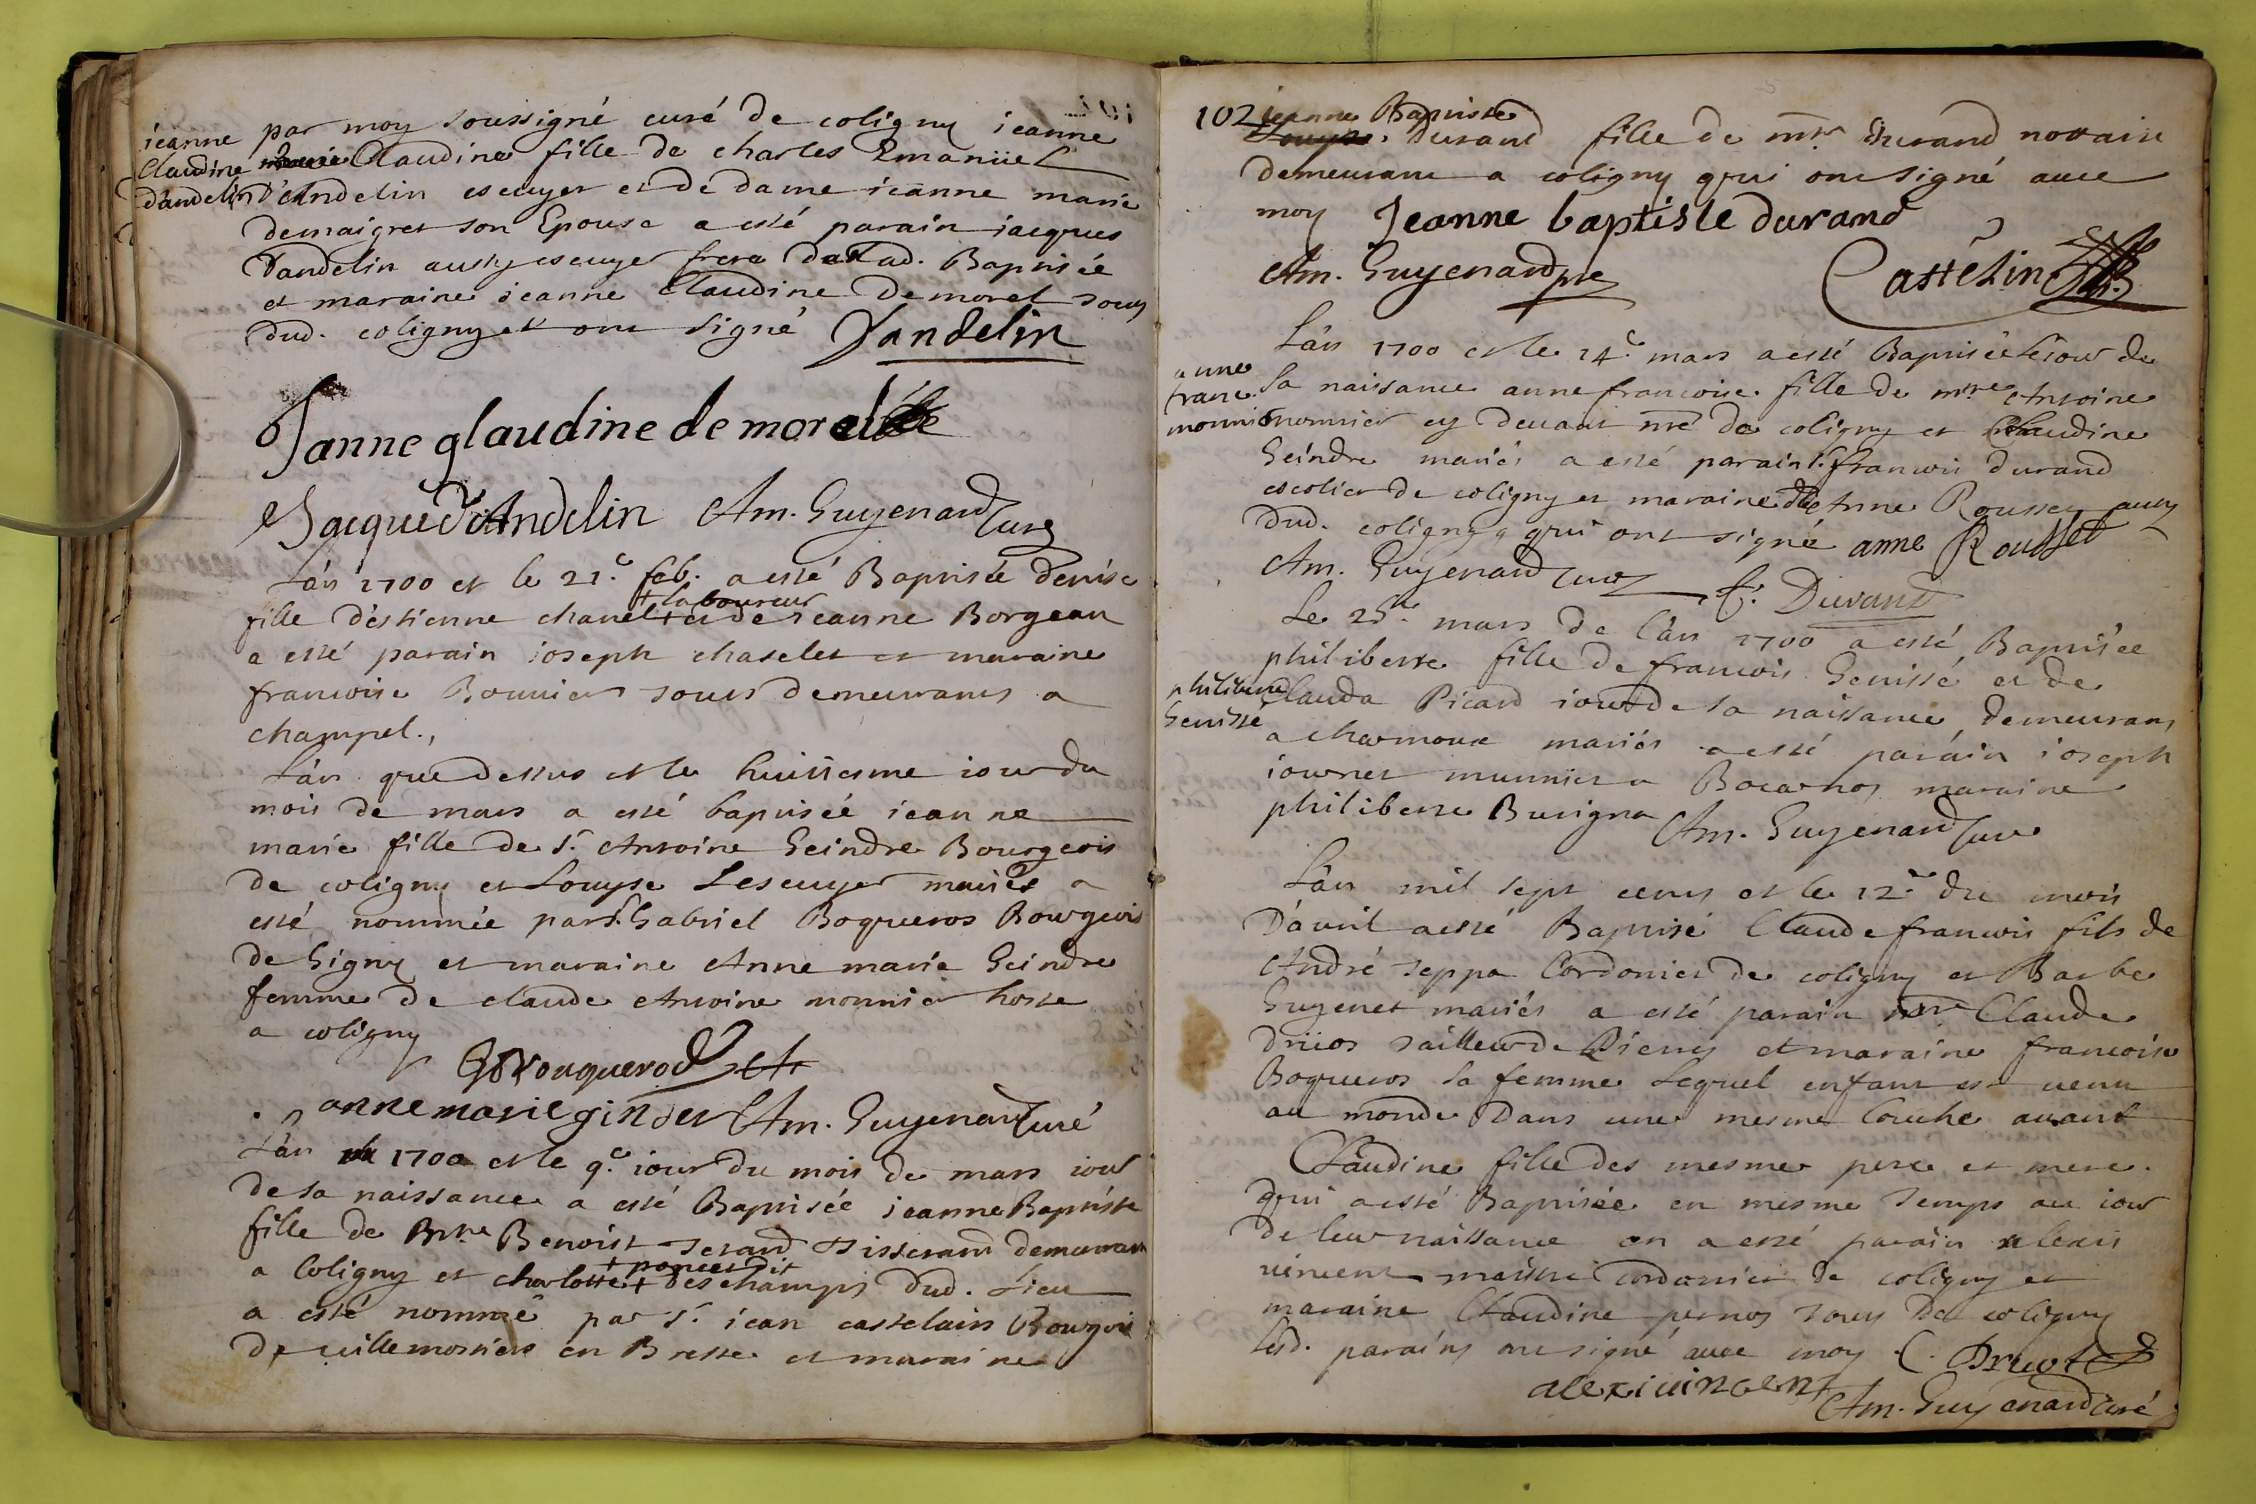 jeanne
Claudine
d'andelin
par moy soussigné curé de coligny jeanne
Claudine fille de charles Emanuel
D'Andelin escuyer et de dame jeanne marie
demaigret son Epouse a esté parain jacques
Dandelin aussy escuyer frere de lad. Baptisée
et maraine jeanne Claudine Demorel tous
dud. coligny et ont signé Dandelin
Janne glaudine de morel
Jacque d'Andelin Am. Guyenard curé
L'an 1700 et le 21e feb. a esté Baptisée denise
+ laboureur
fille d'estienne chanel + et de jeanne Borgean
a esté parain joseph chaselet et maraine
francoise Bouuier tous demeurants a
champel.,
L'an que dessus et le huitiesme iour du
mois de mars a esté baptisée jeanne
marie fille de s.r Antoine Geindre Bourgeois
de coligny et Louyse Lescuyer mariés a
esté nommée par s.r Gabriel Boquerot Bourgeois
de Gigny et maraine Anne marie Geindre
femme de claude Antoine monnier hoste
a coligny
G Bouquerod
anne marie ginder Am. Guyenard Curé
L'an 1700 et le 9e iour du mois de mars iour
de sa naissance a esté Baptisée jeanne Baptiste
fille de Mtre Benoist Tisserand demeurant
+ poncet dit
a Coligny et charlotte + des champs dud. Lieu
a esté nommé par s.r jean castelain Bourgois
de uillemostier en Bresse et maraine
102 jeanne Baptiste
Durand fille de mtre Durand nottaire
demeurant a coligny qui ont signé auec
moy Jeanne baptiste durand
Am. Guyenard pre Castelin
L'an 1700 et le 14e mars a esté Baptisée le iour de
anne
franc.
monnier
sa naissance anne francoise fille de mtre Antoine
monnier cy deuant mre de coligny et Claudine
Geindre mariés a esté parain s.r francois durand
escolier de coligny et maraine dlle Anne Rousset aussy
dud. coligny qui ont signé anne Rousset
Am. Guyenard curé f. Durand
Le 25e mars de l'an 1700 a esté Baptisée
philiberte fille de francois Genissé et de
philiberte
Genisse
Clauda Picard iour de sa naissance demeurans
a charmoux mariés a esté parain joseph
iournet munnier a Bocarnos maraine
philiberte Burigna Am. Guyenard Curé
L'an mil sept cents et le 12e du mois
D'auril a esté Baptisé Claude francois fils de
André Seppa Cordonier de coligny et Barbe
Guyenet mariés a esté parain mtre Claude
Druot tailleur de Pierres et maraine francoise
Boquerot sa femme Lequel enfant est uenu
au monde Dans une mesme Couche auant
Claudine fille des mesmes pere et mere.
qui a esté Baptisée en mesme temps au iour
de leur naissance on a esté parain alexis
uincent maistre cordonier de coligny et
maraine Claudine pernot tous de coligny
Lesd. parains ont signé auec moy C. Druot
alexi uincent
Am. Guyenard Curé